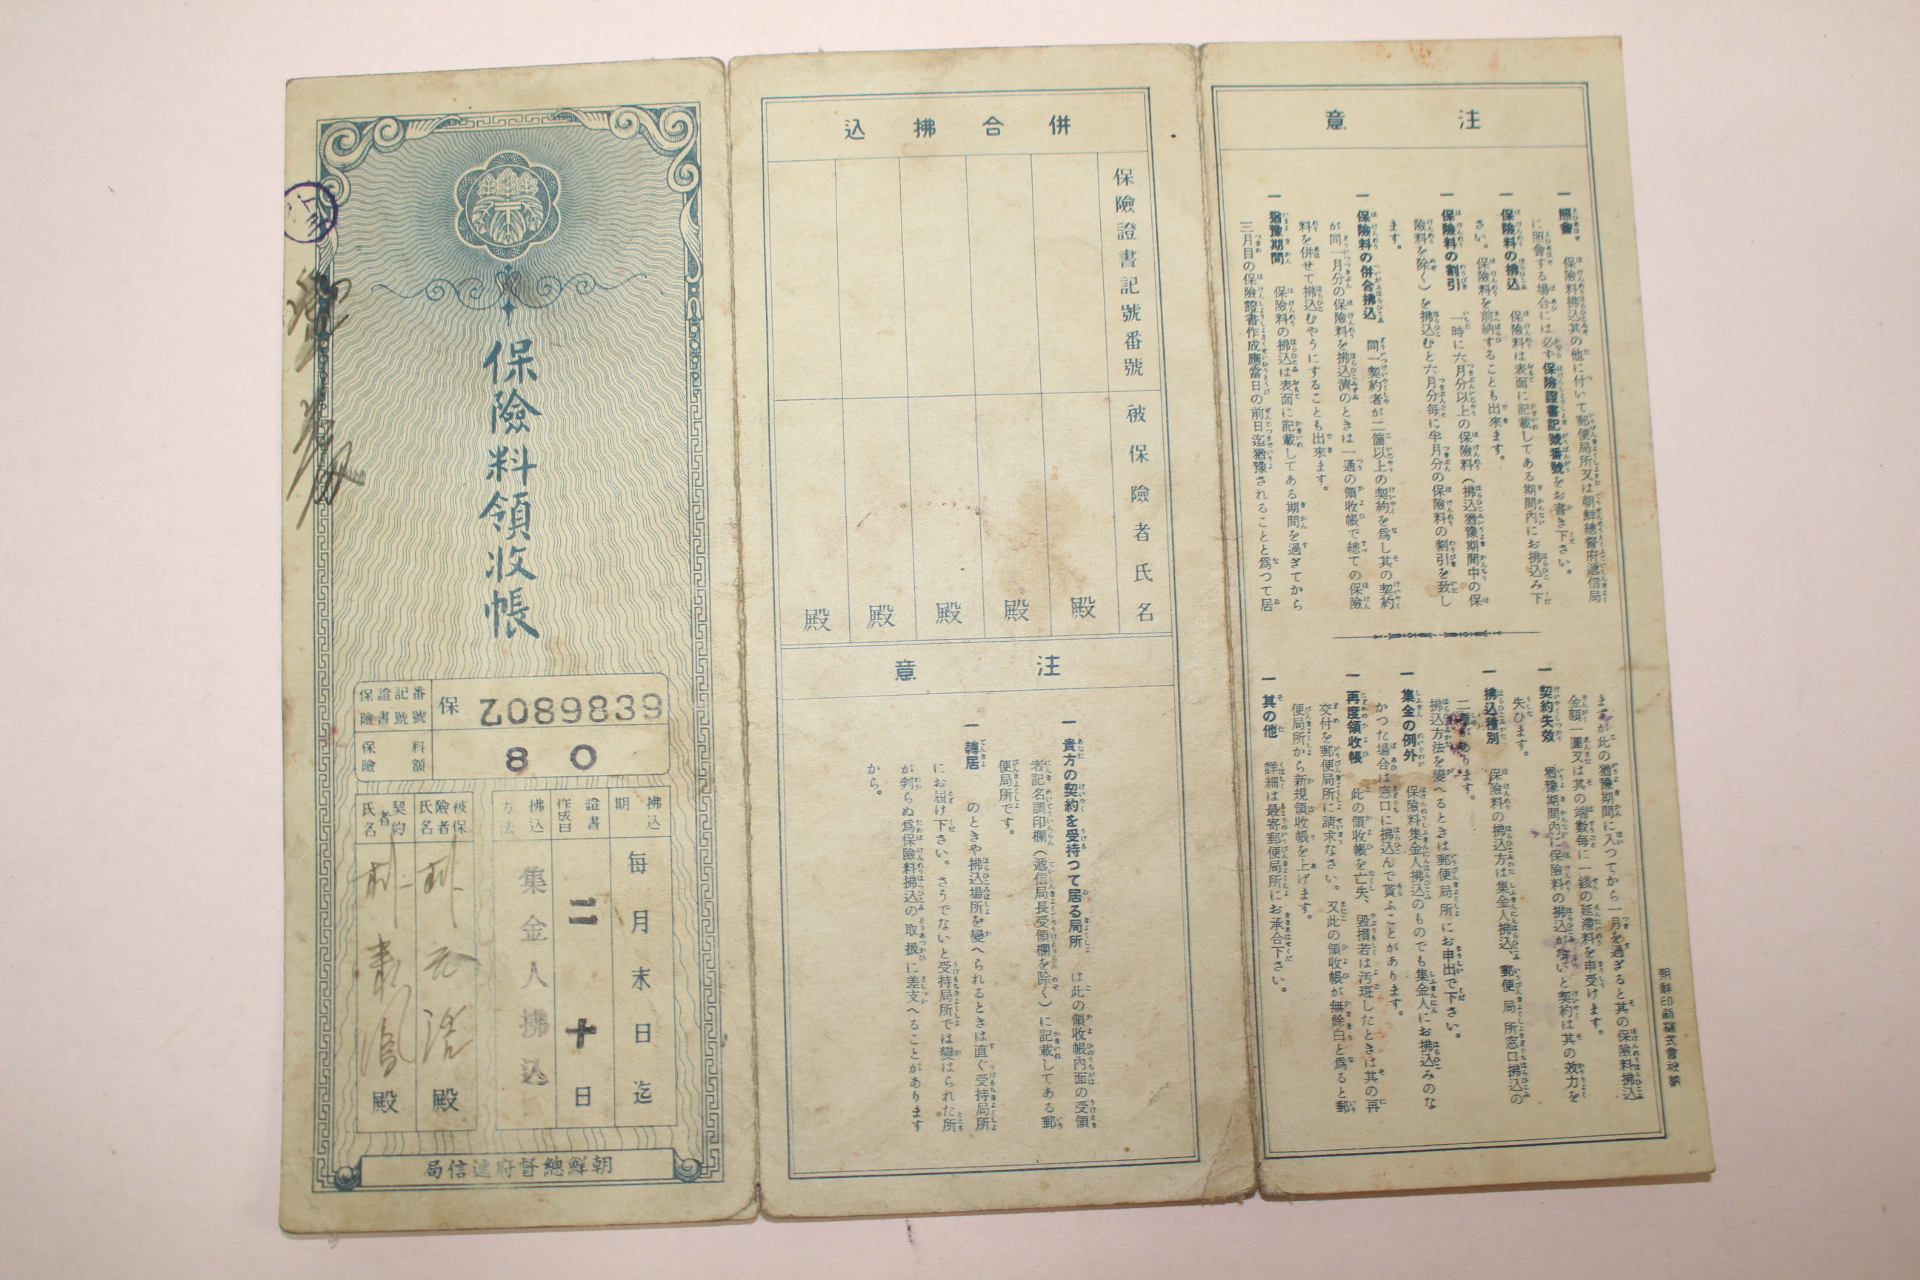 保險料領收帳
保險證書記號番號
保 Z089839
保險料額
80
拂込期
每月末日迄
證書作成日
二十日
拂込方法
集金人拂込
被保險者氏名
殿
契約者氏名
殿
朝鮮總督府遞信局
併合拂込
保險證書記號番號
被保險者氏名
殿
殿
殿
殿
殿
注意
一 貴方の契約を受持つて居る局所 は此の領收帳內面の受領
者記名調印欄(遞信局長受領欄を除く)に記載してある郵
便局所です。
一 轉居 のときや拂込場所を變へられるときは直ぐ受持局所
にお屆け下さい。さうでないと受持局所では變はられた所
が判らぬ爲保險料拂込の取扱に差支へることがあります
から。
注意
一 照會 保險料拂込其の他に付いて郵便局所又は朝鮮總督府遞信局
に照會する場合には必ず保險證書記號番號をお書き下さい。
一 保險料の拂込 保險料は表面に記載してある期間內にお拂込み下
さい。保險料を前納することも出來ます。
一 保險料の割引 一時に六月分以上の保險料(拂込猶豫期間中の保
險料を除く)を拂込むと六月分每に半月分の保險料の割引を致し
ます。
一 保險料の併合拂込 同一契約者が二箇以上の契約を爲し其の契約
が同一月分の保險料を拂込濟のときは一通の領收帳で總ての保險
料を併せて拂込むやうにすることも出來ます。
一 猶豫期間 保險料の拂込は表面に記載してある期間を過ぎてから
三月目の保險證書作成應當日の前日迄猶豫されることと爲つて居
ますが此の猶豫期間に入つてから一月を過ぎると其の保險料拂込
金額一圓又は其の端數每に一錢の延滯料を申受けます。
一 契約失效 猶豫期間內に保險料の拂込がないと契約は其の效力を
失ひます。
一 拂込種別 保險料の拂込方は集金人拂込、郵便局所窓口拂込の
二種あります。
拂込方法を變へるときは郵便局所にお申出で下さい。
一 集金の例外 保險料集金人拂込のものでも集金人にお拂込みのな
かつた場合は窓口に拂込んで貰ふことがあります。
一 再度領收帳 此の領收帳を亡失、毀損若は汚斑したときは其の再
交付を郵便局所に請求なさい。又此の領收帳が無餘白と爲ると郵
便局所から新規領收帳を上げます。
一 其の他 詳細は最寄郵便局所にお承合下さい。
朝鮮印刷株式會社納